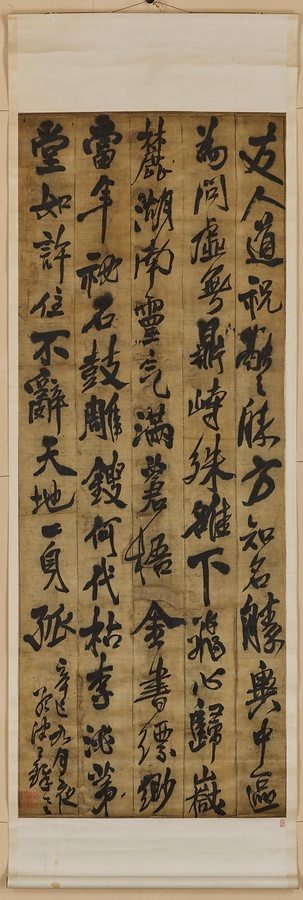 友人道祝融勝方知名勝輿中區
為問虛無鼎峙殊難下將心歸嶽
麓湖南靈氣滿蒼梧金書縹緲
當年祕石鼓雕鎪何代枯李泌茅
堂如許住不辭天地一身孤
辛巳九月夜